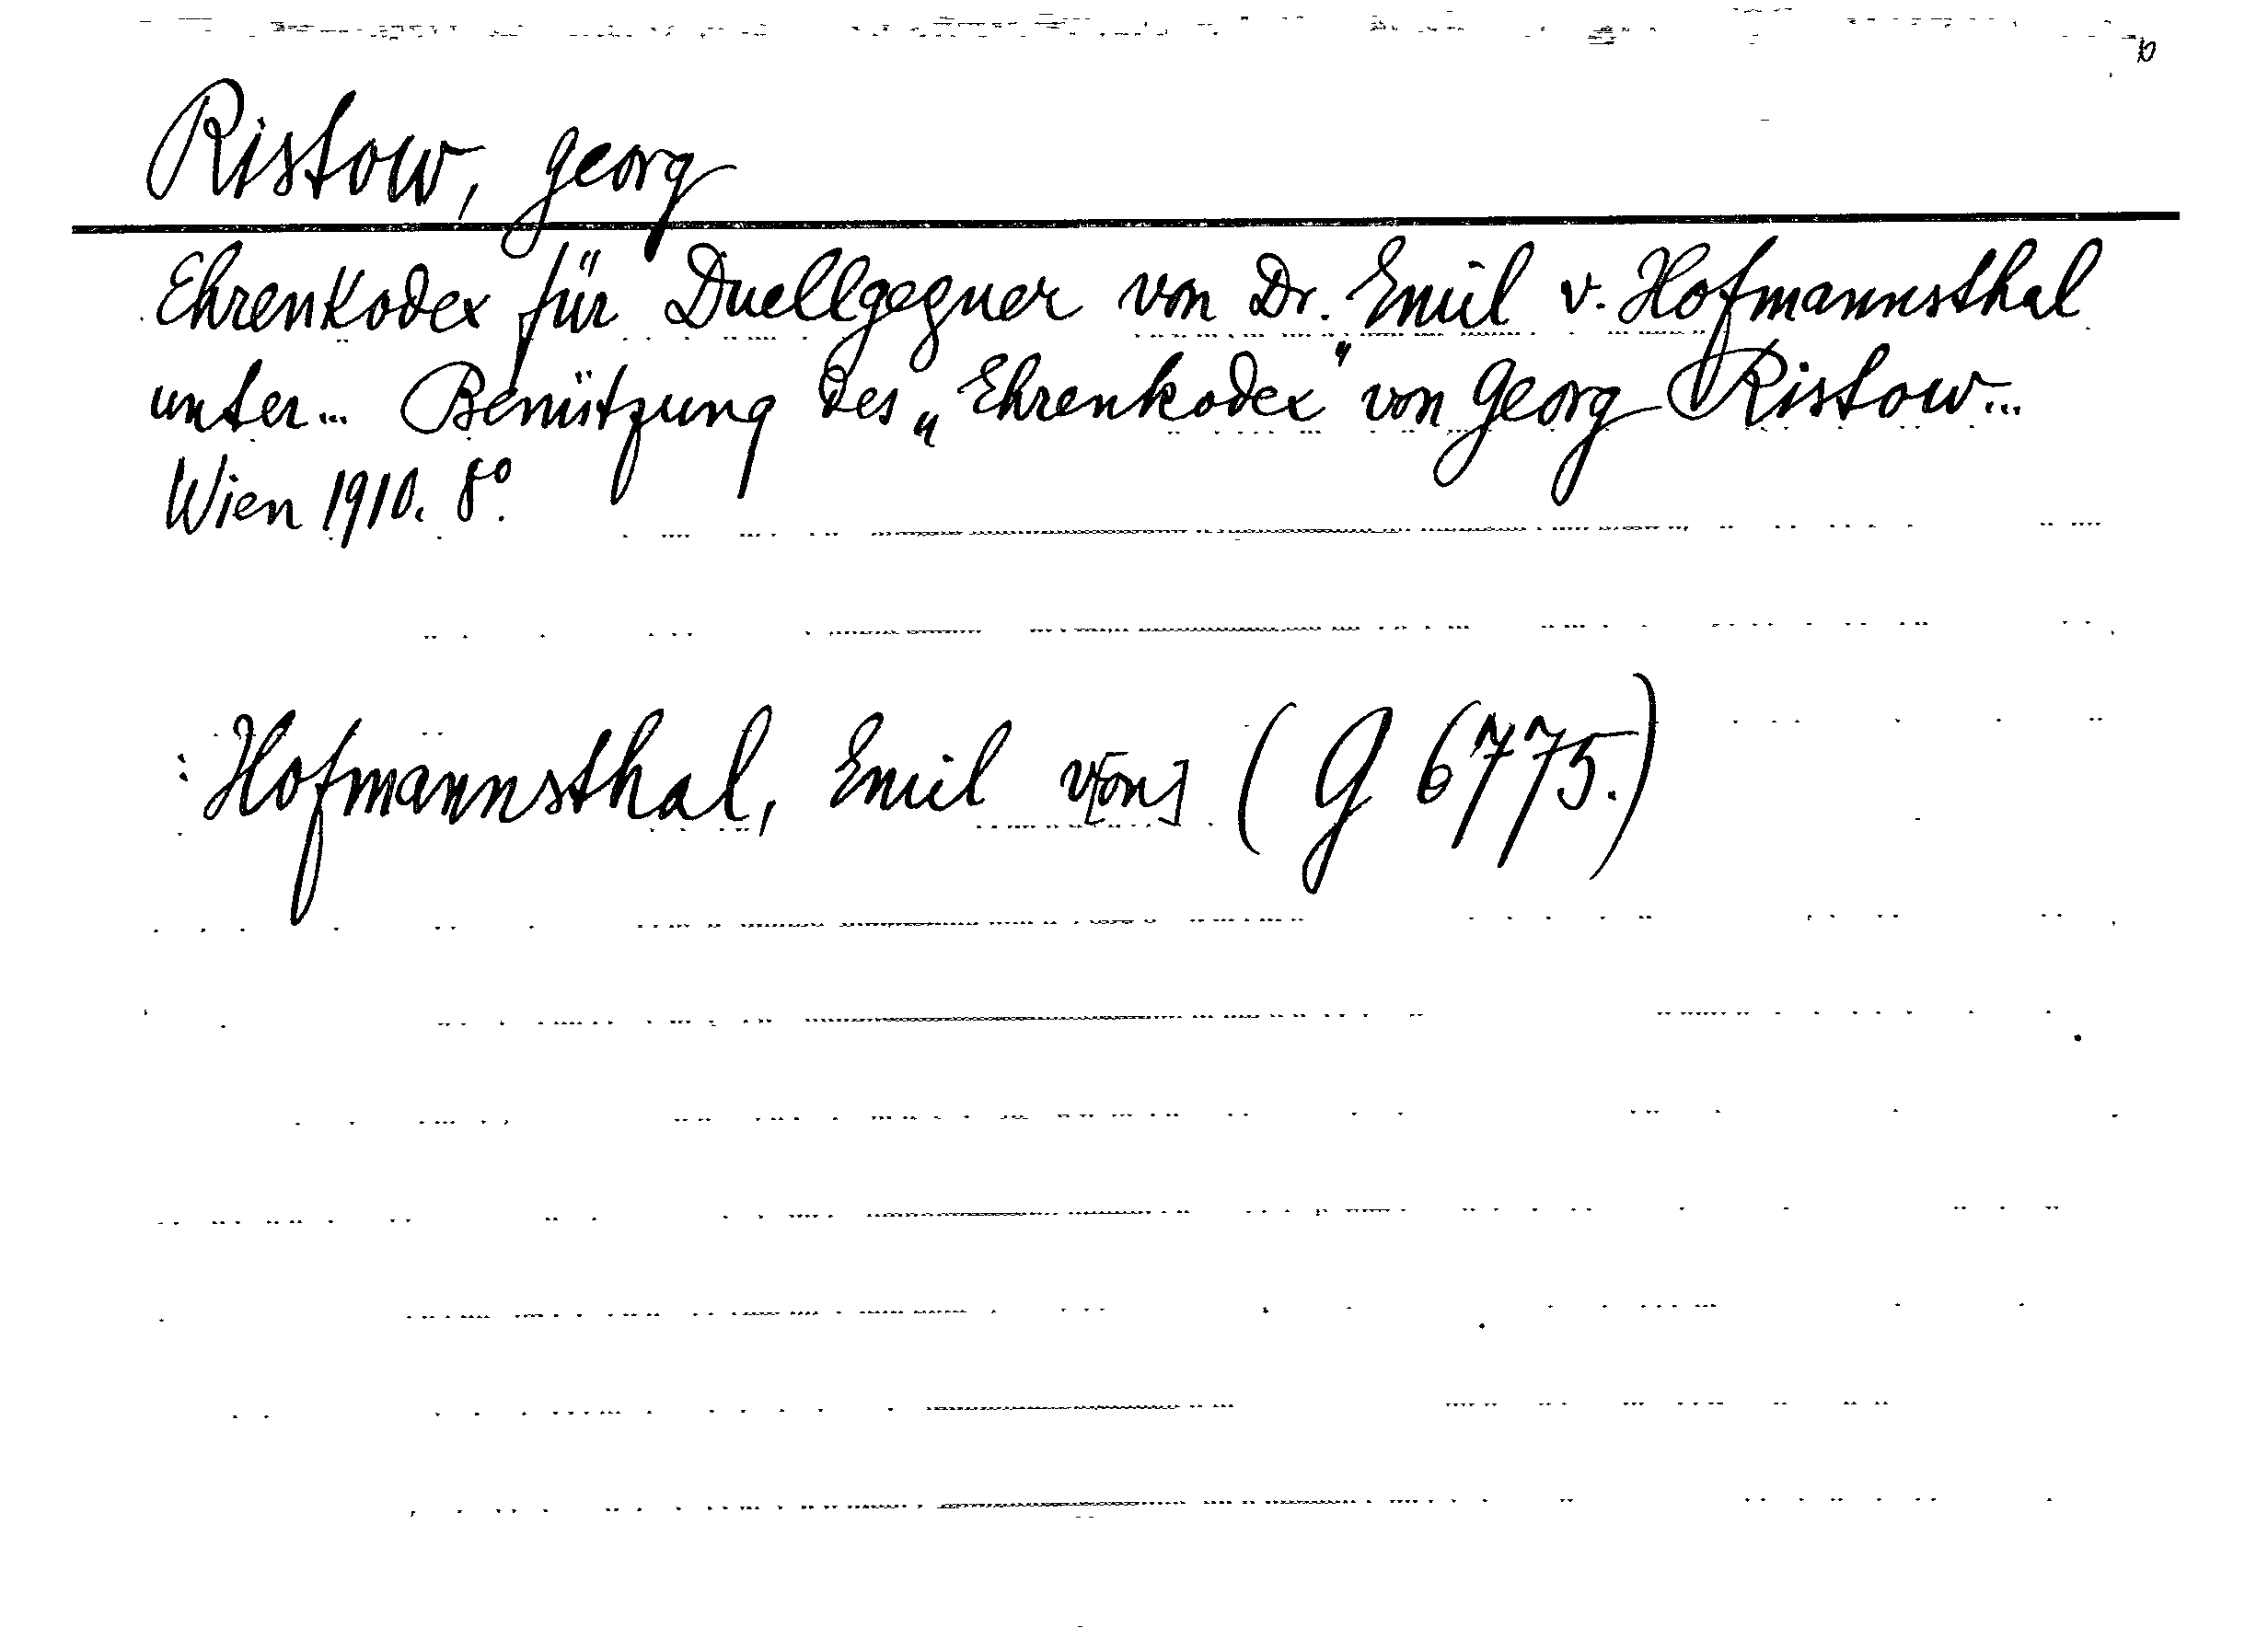 Ristow, Georg
Ehrenkodex für Duellgegner von Dr. Emil v. Hofmannsthal
unter... Benützung des „Ehrenkodex" von Georg Ristow...
Wien 1910. 8°.
: Hofmannsthal, Emil v[on] (G 6775.)